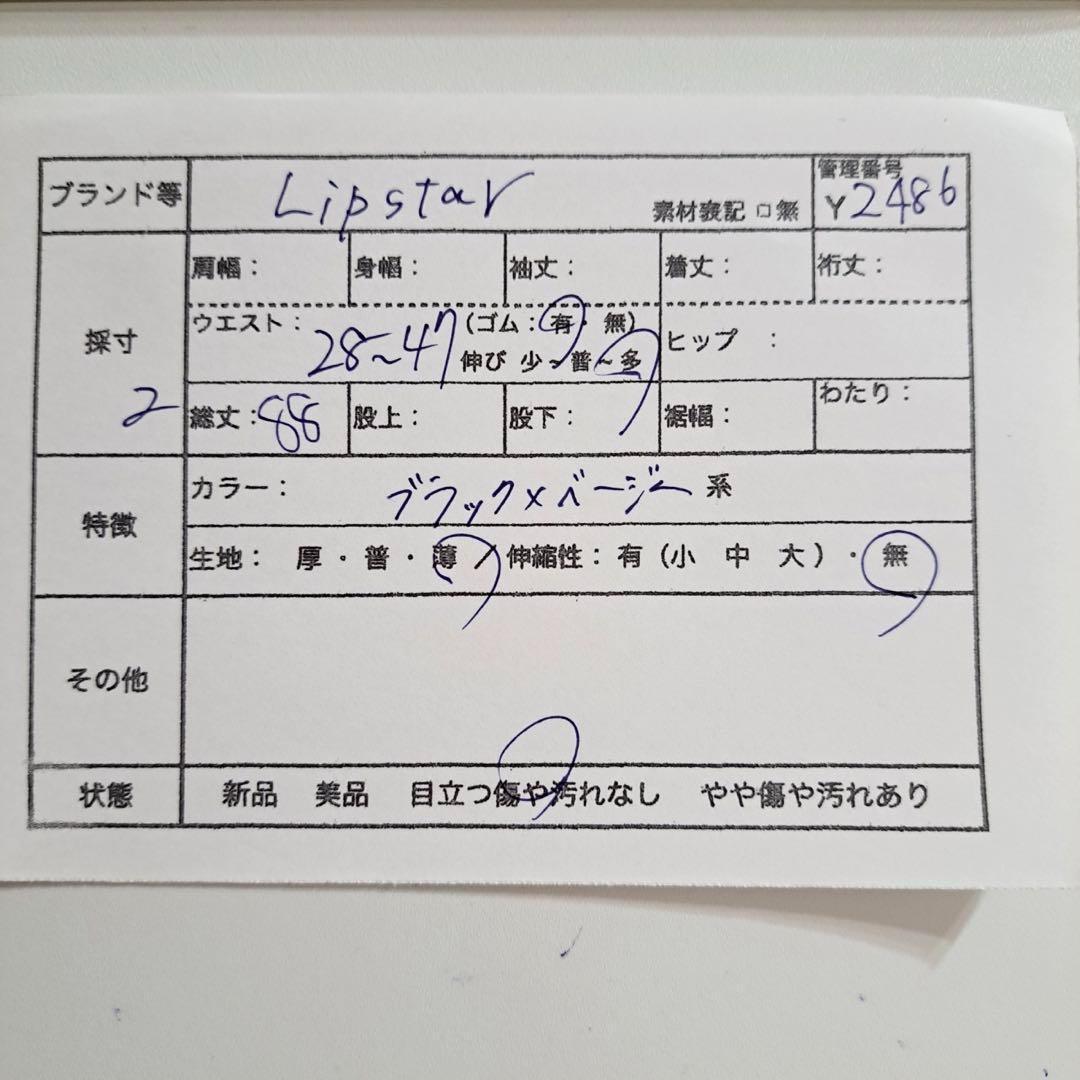 ブランド等 Lipstar 素材表記 □ 無 管理番号 Y2486
採寸 2
肩幅： 身幅： 袖丈： 着丈： 裄丈：
ウエスト： 28~47 (ゴム：有・無)
伸び 少~普~多
ヒップ ：
総丈：88 股上： 股下： 裾幅： わたり：
特徴
カラー： ブラック×ベージュ 系
生地： 厚・普・薄 / 伸縮性：有 (小 中 大)・無
その他
状態 新品 美品 目立つ傷や汚れなし やや傷や汚れあり